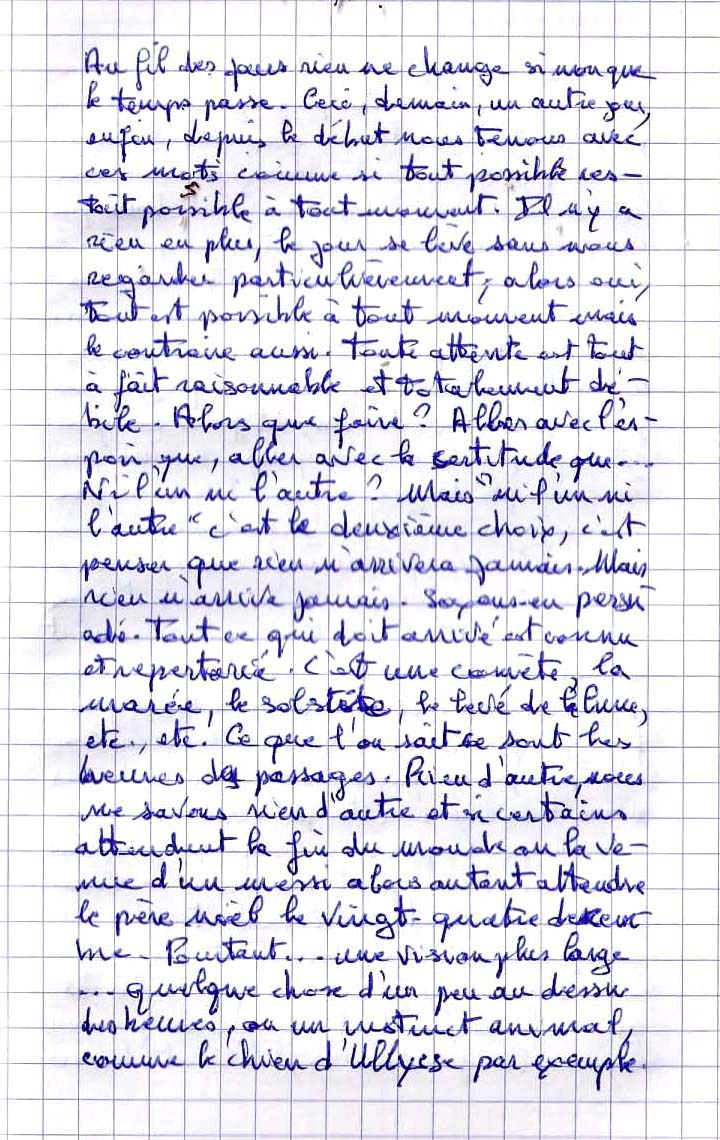 Au fil des jours rien ne change sinon que
le temps passe. Ceci, demain, un autre jour,
enfin, depuis le début nous tenons avec
ces mots comme si tout possible res-
tait possible à tout moment. Il n'y a
rien en plus, le jour se lève sans nous
regarder particulièrement; alors oui,
tout est possible à tout moment mais
le contraire aussi. Toute attente est tout
à fait raisonnable et totalement dé-
bile. Alors que faire? Aller avec l'es-
poir que, aller avec la sertitude que...
Ni l'un ni l'autre? Mais "ni l'un ni
l'autre" c'est le deuxième choix, c'est
penser que rien n'arrivera jamais. Mais
rien n'arrive jamais. Soyons-en persu
adé. Tout ce qui doit arrivé est connu
et repertorié. C'est une comète, la
marée, le solstice, le levé de la lune,
etc., etc. Ce que l'on sait ce sont les
heures des passages. Rien d'autre, nous
ne savons rien d'autre et si certains
attendent la fin du monde ou la ve-
nue d'un messi alors autant attendre
le père noël le vingt-quatre décem
bre. Pourtant... une vision plus large
... quelque chose d'un peu au dessu
des heures, ou un instinct animal,
comme le chien d'Ullysse par exemple.